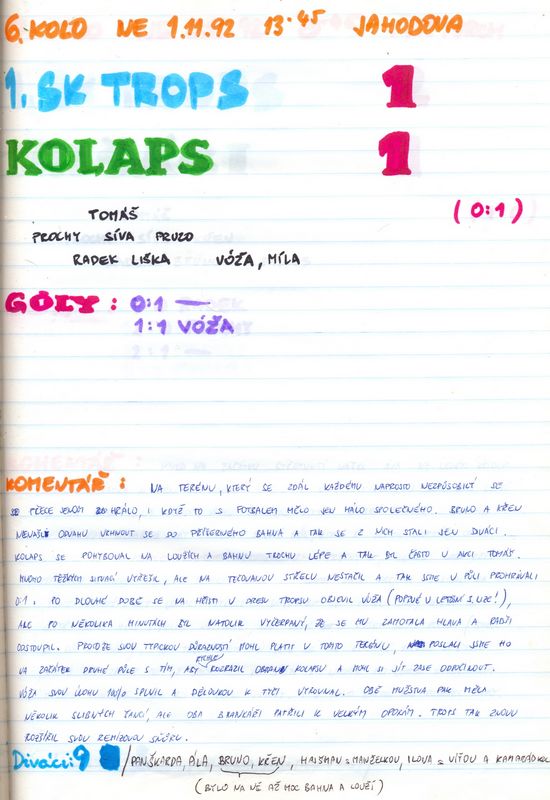 6. KOLO NE 1.11.92 13.45 JAHODOVA
1. SK TROPS 1
KOLAPS 1
TOMÁŠ (0:1)
PROCHY SÍVA PRUZO
RADEK LIŠKA VÓŽA, MÍLA
GÓLY : 0:1 —
1:1 VÓŽA
KOMENTÁŘ : NA TERÉNU, KTERÝ SE ZDÁL KAŽDÉMU NAPROSTO NEZPŮSOBILÝ SE
PŘECE JENOM HRÁLO, I KDYŽ TO S FOTBALEM MĚLO JEN MÁLO SPOLEČNÉHO. BRUNO A KŘEN
NENAŠLI ODVAHU VRHNOUT SE DO PŘÍŠERNÉHO BAHNA A TAK SE Z NICH STALI JEN DIVÁCI.
KOLAPS SE POHYBOVAL NA LOUŽÍCH A BAHNU TROCHU LÉPE A TAK BYL ČASTO V AKCI TOMÁŠ.
MNOHO TĚŽKÝCH SITUACÍ VYŘEŠIL, ALE NA TEČOVANOU STŘELU NESTAČIL A TAK JSME V PŮLI PROHRÁVALI
0:1. PO DLOUHÉ DOBĚ SE NA HŘIŠTI V DRESU TROPSU OBJEVIL VÓŽA (POPRVÉ V LETOŠNÍ S. LIZE!),
ALE PO NĚKOLIKA MINUTÁCH BYL NATOLIK VYČERPANÝ, ŽE SE MU ZAMOTALA HLAVA A RADĚJI
ODSTOUPIL. PROTOŽE SVOU TYPICKOU DŮRAZNOSTÍ MOHL PLATIT V TOMTO TERÉNU, POSLALI JSME HO
NA ZAČÁTEK DRUHÉ PŮLE S TÍM, ABY RYCHLE ROZRAZIL OBRANU KOLAPSU A MOHL SI JÍT ZASE ODPOČINOUT.
VÓŽA SVOU ÚLOHU 100% SPLNIL A DĚLOVKOU K TYČI VYROVNAL. OBĚ MUŽSTVA PAK MĚLA
NĚKOLIK SLIBNÝCH ŠANCÍ, ALE OBA BRANKÁŘI PATŘILI K VELKÝM OPORÁM. TROPS TAK ZNOVU
ROZŠÍŘIL SVOU REMÍZOVOU SBÍRKU.
Diváci: 9 / PANŠKARDA, PÍLA, BRUNO, KŘEN, HAISMAN S MANŽELKOU, ILOVA S VÍŤOU A KAMARÁDKOU
(BYLO NA NĚ AŽ MOC BAHNA A LOUŽÍ)